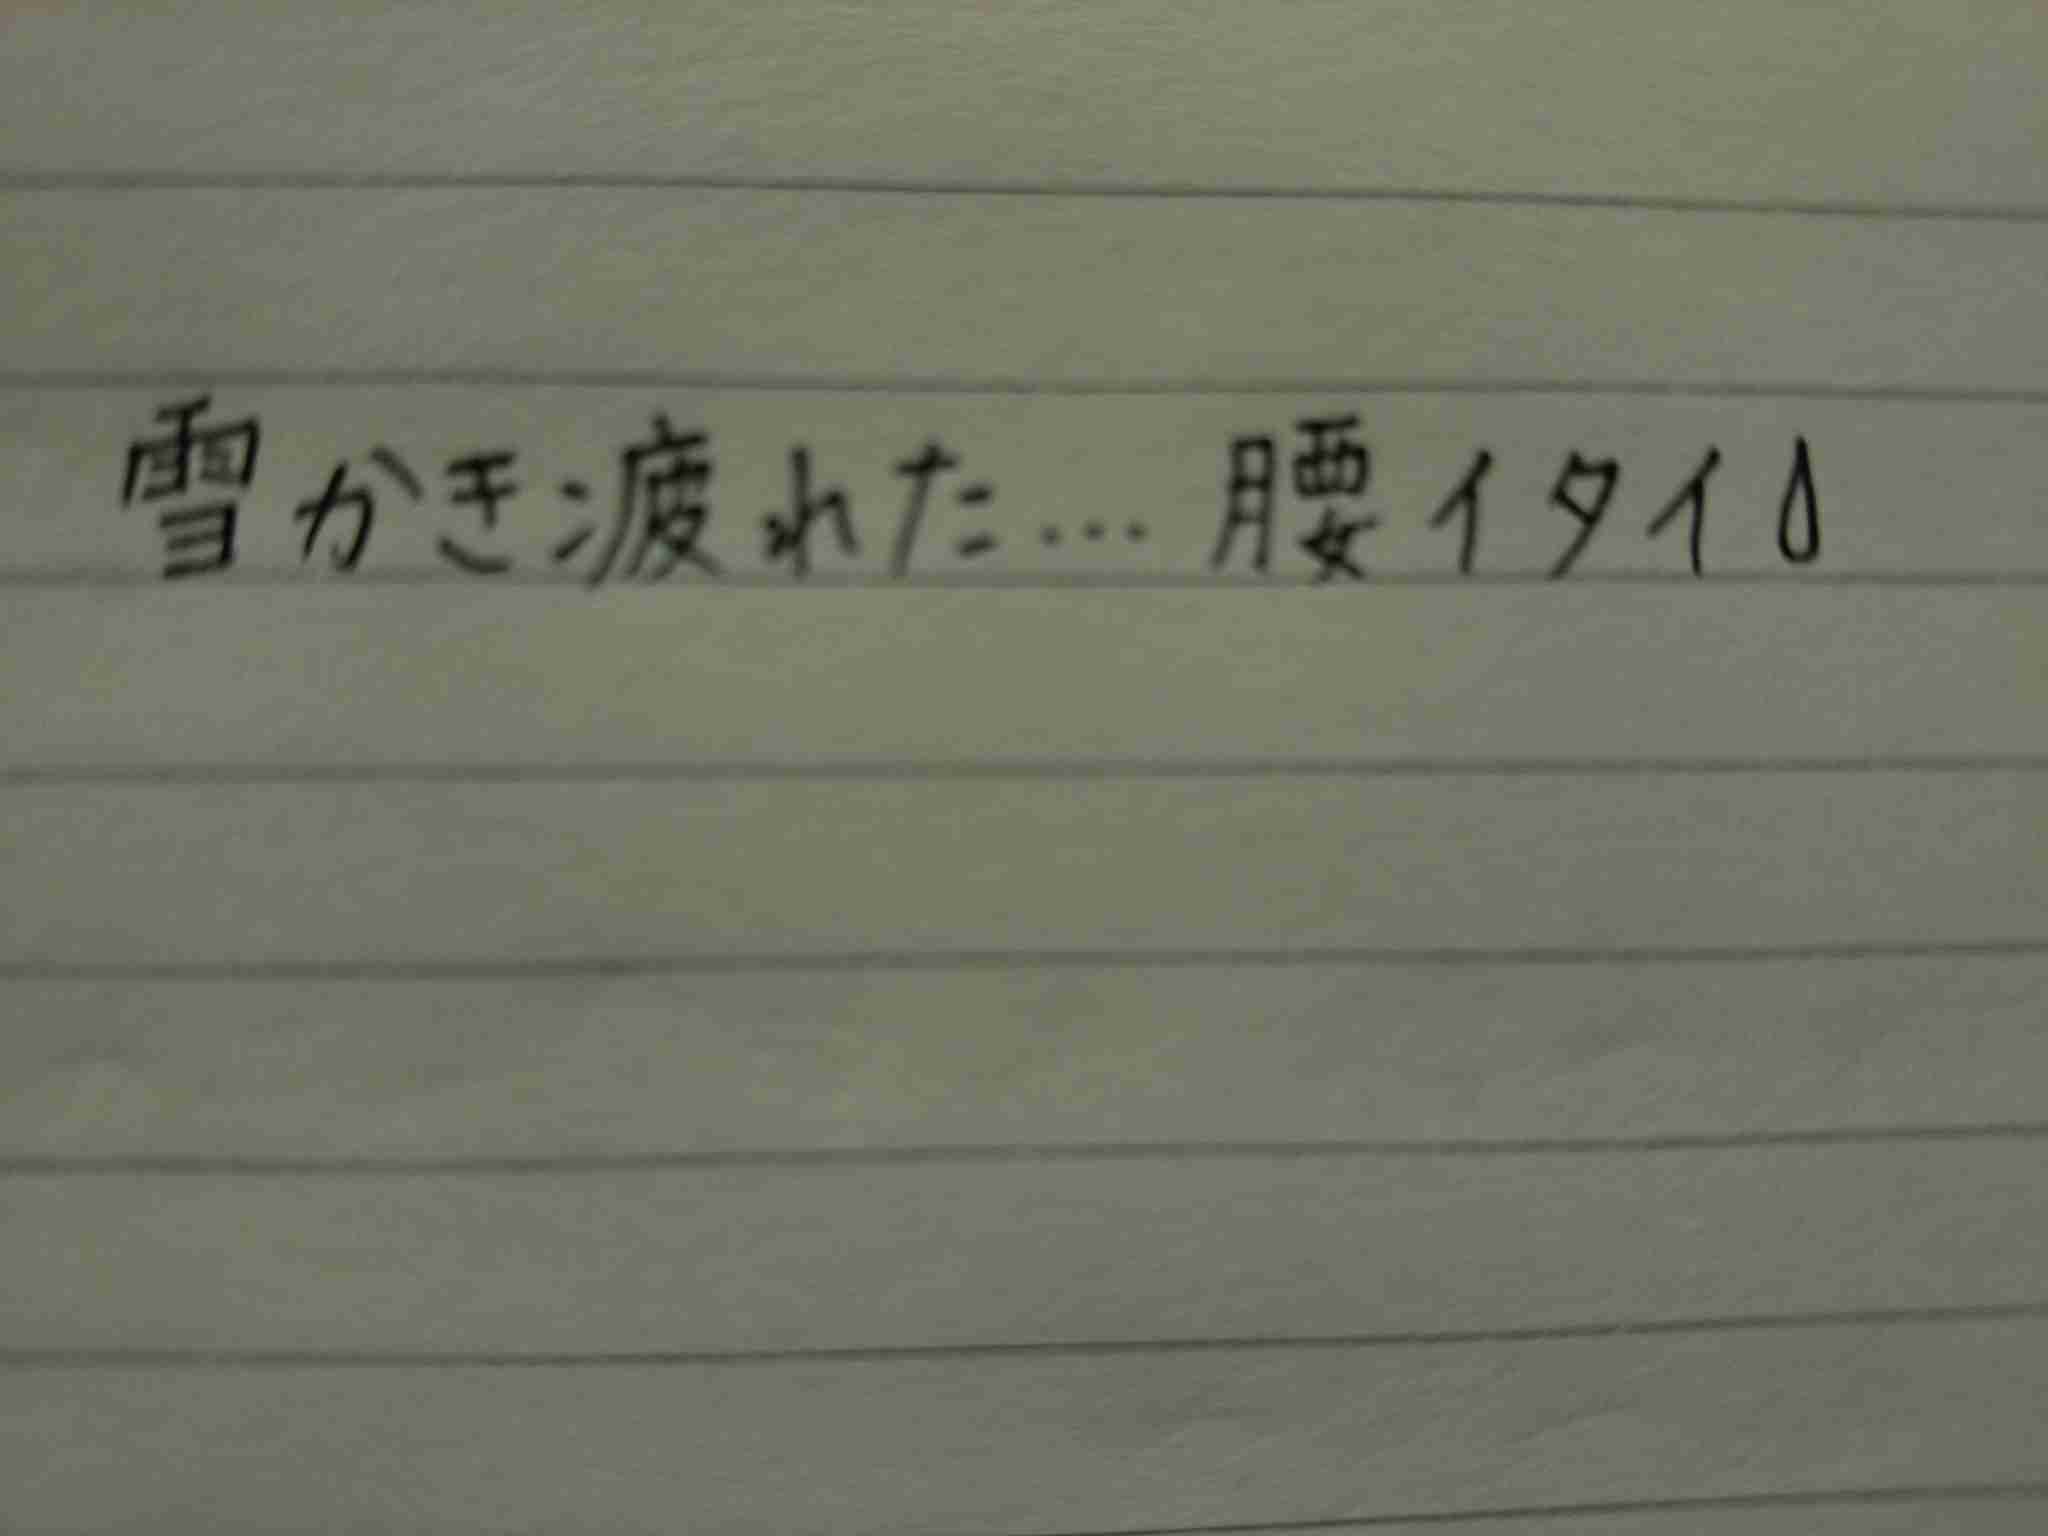 雪かき疲れた… 腰イタイ💧